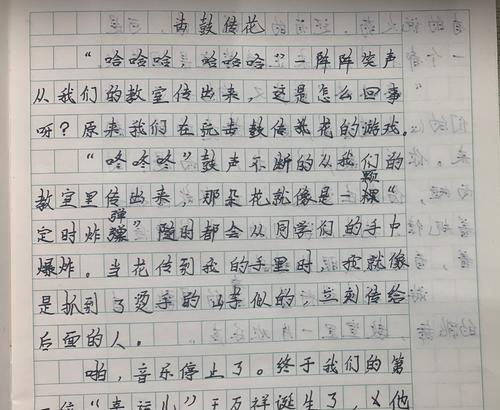 击鼓传花
“哈哈哈，哈哈哈”一阵阵笑声
从我们的教室传出来，这是怎么回事
呀？原来我们在玩击鼓传花的游戏。
“咚咚咚”鼓声不断的从我们的
教室里传出来，那朵花就像是一颗“
定时炸弹”随时都会从同学们的手中
爆炸。当花传到我的手里时，我就像
是抓到了烫手的山芋似的，立刻传给
后面的人。
啪，音乐停止了。终于我们的第
一位“幸运儿”王万祥诞生了，又他